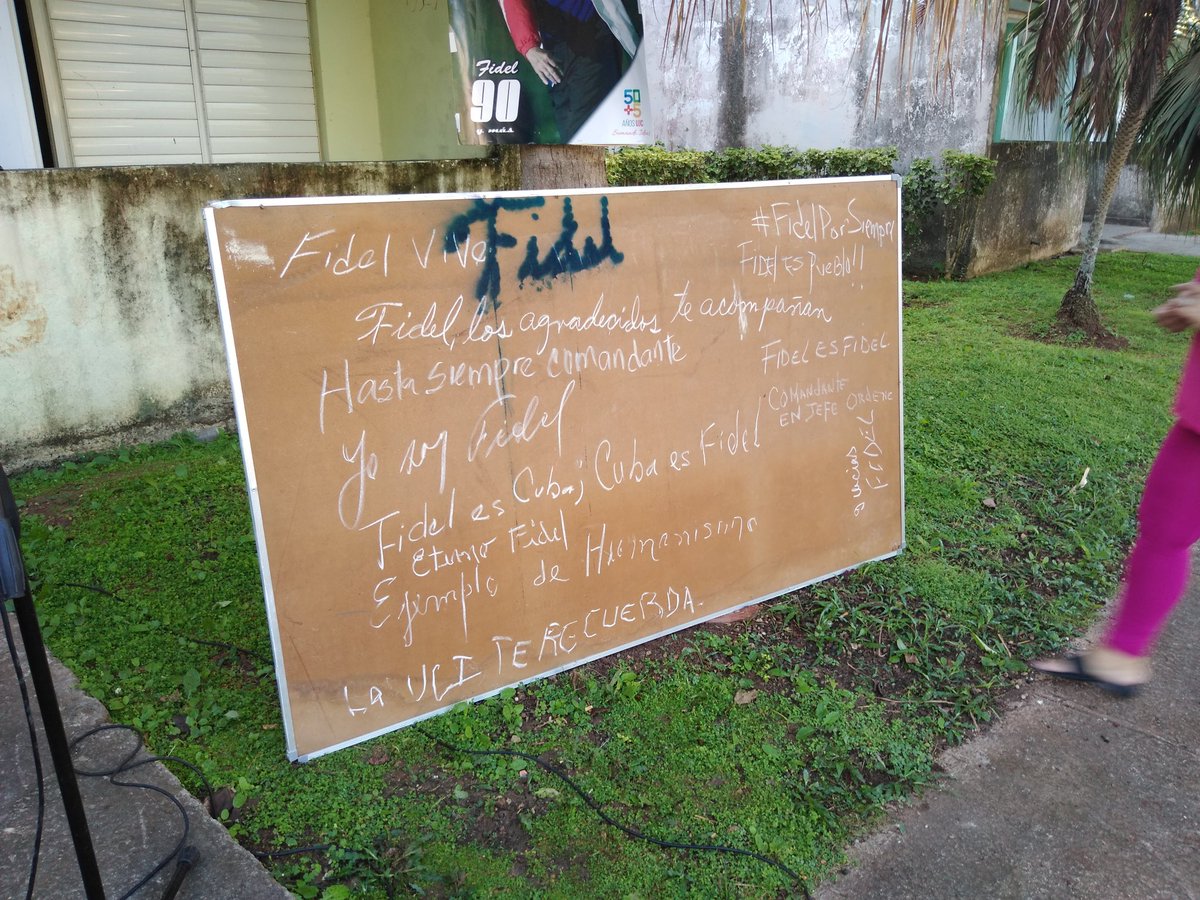 Fidel
90
y más
50
+5
AÑOS UCI
Fidel Vive
Fidel
#FidelPorSiempre
FIDEL ES Pueblo!!
Fidel, los agradecidos te acompañan
Hasta siempre comandante
FIDEL ES FIDEL
COMANDANTE
EN JEFE ORDENE
Yo soy Fidel
gracias
FIDEL
Fidel es Cuba; Cuba es Fidel
Eterno Fidel
Ejemplo de Humanismo
LA UCI TE RECUERDA.